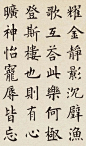 耀金靜影沈璧漁
歌互答此樂何極
登斯樓也則有心
曠神怡寵辱皆忘